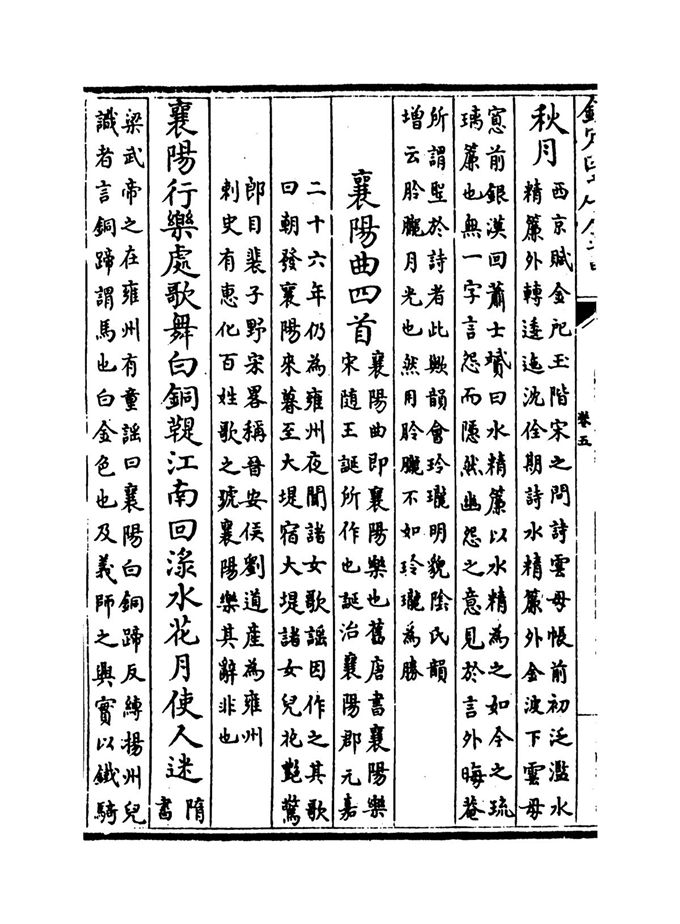 卷五
秋月
西京賦金戺玉階宋之問詩雲母帳前初泛濫水
精簾外轉逶迤沈佺期詩水精簾外金波下雲母
窓前銀漢回蕭士贇曰水精簾以水精為之如今之琉
璃簾也無一字言怨而隱然幽怨之意見於言外晦菴
所謂聖於詩者此歟韻會玲瓏明貌陰氏韻
增云朎朧月光也然用朎朧不如玲瓏為勝
襄陽曲四首
襄陽曲即襄陽樂也舊唐書襄陽樂
宋隨王誕所作也誕治襄陽郡元嘉
二十六年仍為雍州夜聞諸女歌謡因作之其歌
曰朝發襄陽來暮至大堤宿大堤諸女兒花艷驚
郎目裴子野宋畧稱晉安侯劉道産為雍州
刺史有恵化百姓歌之號襄陽樂其辭非也
襄陽行樂處歌舞白銅鞮江南回渌水花月使人迷
隋
書
梁武帝之在雍州有童謡曰襄陽白銅蹄反縛揚州兒
識者言銅蹄謂馬也白金色也及義師之興實以鐵騎